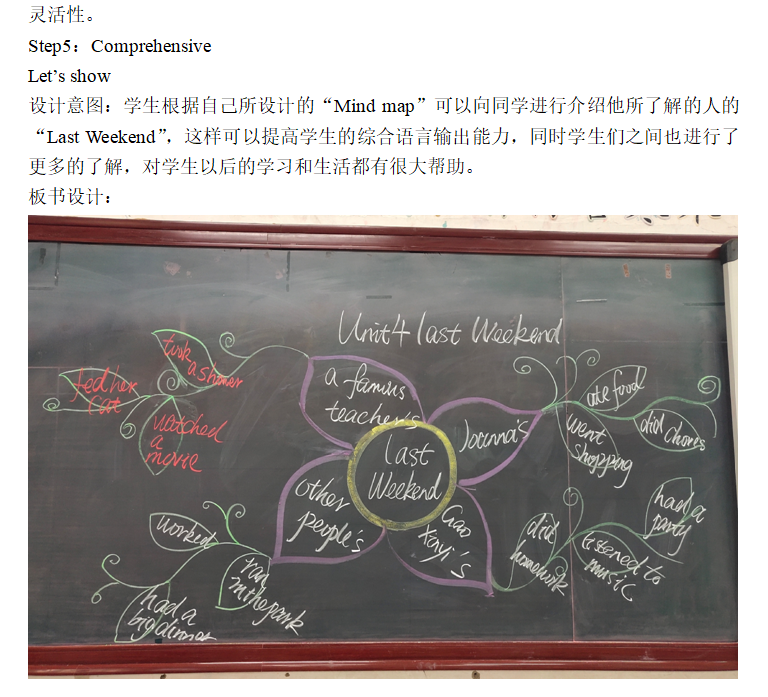 灵活性。
Step5：Comprehensive
Let's show
设计意图：学生根据自己所设计的“Mind map”可以向同学进行介绍他所了解的人的
“Last Weekend”，这样可以提高学生的综合语言输出能力，同时学生们之间也进行了
更多的了解，对学生以后的学习和生活都有很大帮助。
板书设计：
Unit4 last Weekend
took
a shower
fed her
cat
watched
a
movie
a famous
teacher's
Joanna's
ate food
went
shopping
did chores
last
Weekend
other
people's
Gao
did
homework
listened to
music
had a
party
worked
ran
in the park
had a
big dinner